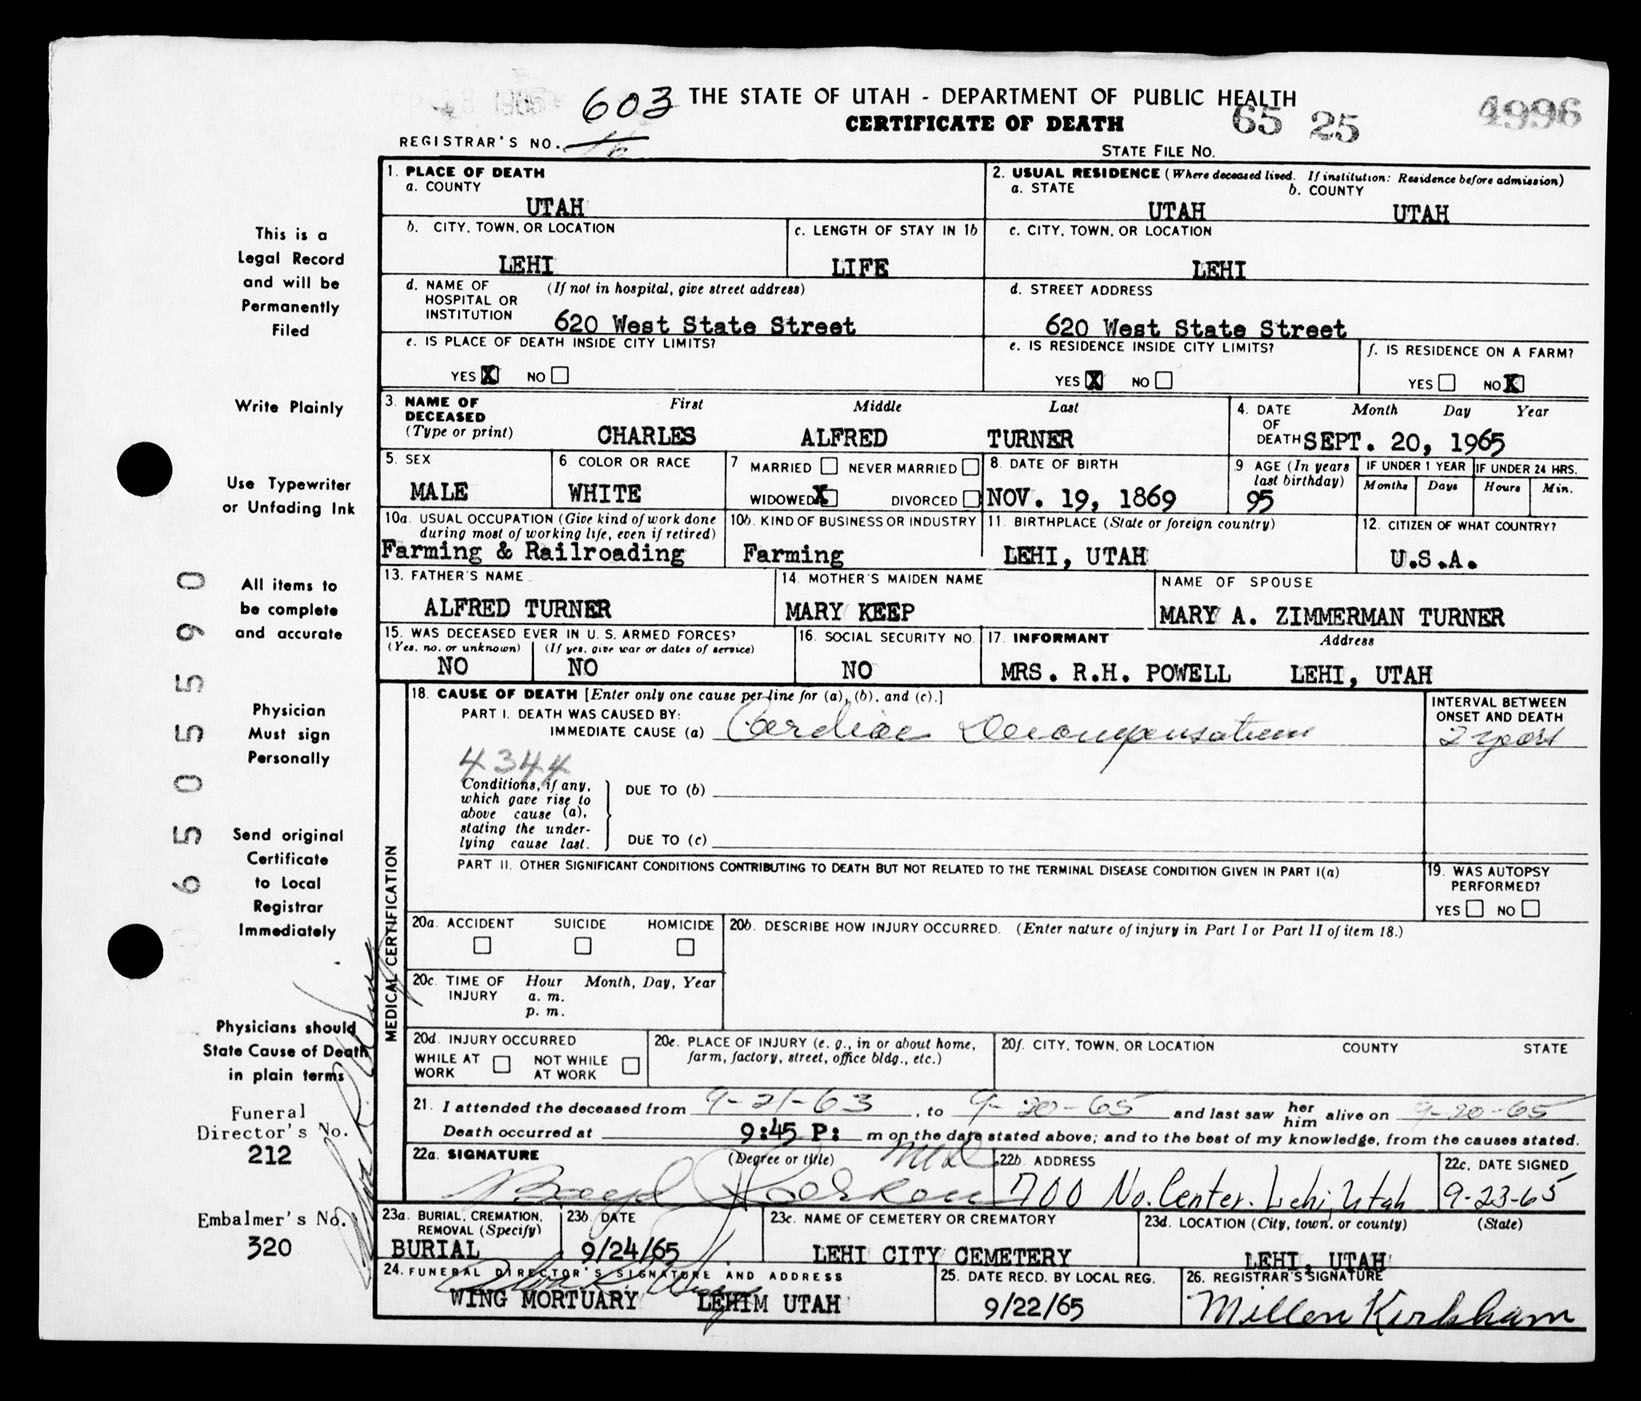 603 THE STATE OF UTAH - DEPARTMENT OF PUBLIC HEALTH
CERTIFICATE OF DEATH 65 25 4996
REGISTRAR'S NO. STATE FILE NO.
1. PLACE OF DEATH
a. COUNTY
UTAH
2. USUAL RESIDENCE (Where deceased lived. If institution: Residence before admission)
a. STATE b. COUNTY
UTAH UTAH
b. CITY, TOWN, OR LOCATION
LEHI
c. LENGTH OF STAY IN 1b
LIFE
c. CITY, TOWN, OR LOCATION
LEHI
d. NAME OF (If not in hospital, give street address)
HOSPITAL OR
INSTITUTION
620 West State Street
d. STREET ADDRESS
620 West State Street
e. IS PLACE OF DEATH INSIDE CITY LIMITS?
YES X NO
e. IS RESIDENCE INSIDE CITY LIMITS?
YES X NO
f. IS RESIDENCE ON A FARM?
YES NO X
3. NAME OF First Middle Last
DECEASED
(Type or print) CHARLES ALFRED TURNER
4. DATE Month Day Year
OF
DEATH SEPT. 20, 1965
5. SEX
MALE
6. COLOR OR RACE
WHITE
7 MARRIED NEVER MARRIED
WIDOWED X DIVORCED
8. DATE OF BIRTH
NOV. 19, 1869
9 AGE (In years
last birthday)
95
IF UNDER 1 YEAR IF UNDER 24 HRS.
Months Days Hours Min.
10a. USUAL OCCUPATION (Give kind of work done
during most of working life, even if retired)
Farming & Railroading
10b. KIND OF BUSINESS OR INDUSTRY
Farming
11. BIRTHPLACE (State or foreign country)
LEHI, UTAH
12. CITIZEN OF WHAT COUNTRY?
U.S.A.
13. FATHER'S NAME
ALFRED TURNER
14. MOTHER'S MAIDEN NAME
MARY KEEP
NAME OF SPOUSE
MARY A. ZIMMERMAN TURNER
15. WAS DECEASED EVER IN U.S. ARMED FORCES?
(Yes, no, or unknown) (If yes, give war or dates of service)
NO NO
16. SOCIAL SECURITY NO.
NO
17. INFORMANT Address
MRS. R.H. POWELL LEHI, UTAH
MEDICAL CERTIFICATION
18. CAUSE OF DEATH [Enter only one cause per line for (a), (b), and (c).]
PART I. DEATH WAS CAUSED BY:
IMMEDIATE CAUSE (a) Cardiac Decompensation
INTERVAL BETWEEN
ONSET AND DEATH
2 years
4344
Conditions, if any,
which gave rise to
above cause (a),
stating the under-
lying cause last.
DUE TO (b)
DUE TO (c)
PART II. OTHER SIGNIFICANT CONDITIONS CONTRIBUTING TO DEATH BUT NOT RELATED TO THE TERMINAL DISEASE CONDITION GIVEN IN PART I(a)
19. WAS AUTOPSY
PERFORMED?
YES NO
20a. ACCIDENT SUICIDE HOMICIDE
20b. DESCRIBE HOW INJURY OCCURRED. (Enter nature of injury in Part I or Part II of item 18.)
20c. TIME OF Hour Month, Day, Year
INJURY a. m.
p. m.
20d. INJURY OCCURRED
WHILE AT NOT WHILE
WORK AT WORK
20e. PLACE OF INJURY (e. g., in or about home,
farm, factory, street, office bldg., etc.)
20f. CITY, TOWN, OR LOCATION COUNTY STATE
21. I attended the deceased from 9-21-63, to 9-20-65 and last saw her him alive on 9-20-65
Death occurred at 9:45 P: m on the date stated above; and to the best of my knowledge, from the causes stated.
22a. SIGNATURE (Degree or title) MD
Boyd Larson
22b. ADDRESS
700 No. Center. Lehi, Utah
22c. DATE SIGNED
9-23-65
23a. BURIAL, CREMATION,
REMOVAL (Specify)
BURIAL
23b. DATE
9/24/65
23c. NAME OF CEMETERY OR CREMATORY
LEHI CITY CEMETERY
23d. LOCATION (City, town, or county) (State)
LEHI, UTAH
24. FUNERAL DIRECTOR'S SIGNATURE AND ADDRESS
WING MORTUARY LEHIM UTAH
25. DATE RECD. BY LOCAL REG.
9/22/65
26. REGISTRAR'S SIGNATURE
Millen Kirkham
This is a
Legal Record
and will be
Permanently
Filed
Write Plainly
Use Typewriter
or Unfading Ink
All items to
be complete
and accurate
Physician
Must sign
Personally
Send original
Certificate
to Local
Registrar
Immediately
Physicians should
State Cause of Death
in plain terms
Funeral
Director's No.
212
Embalmer's No.
320
65050590